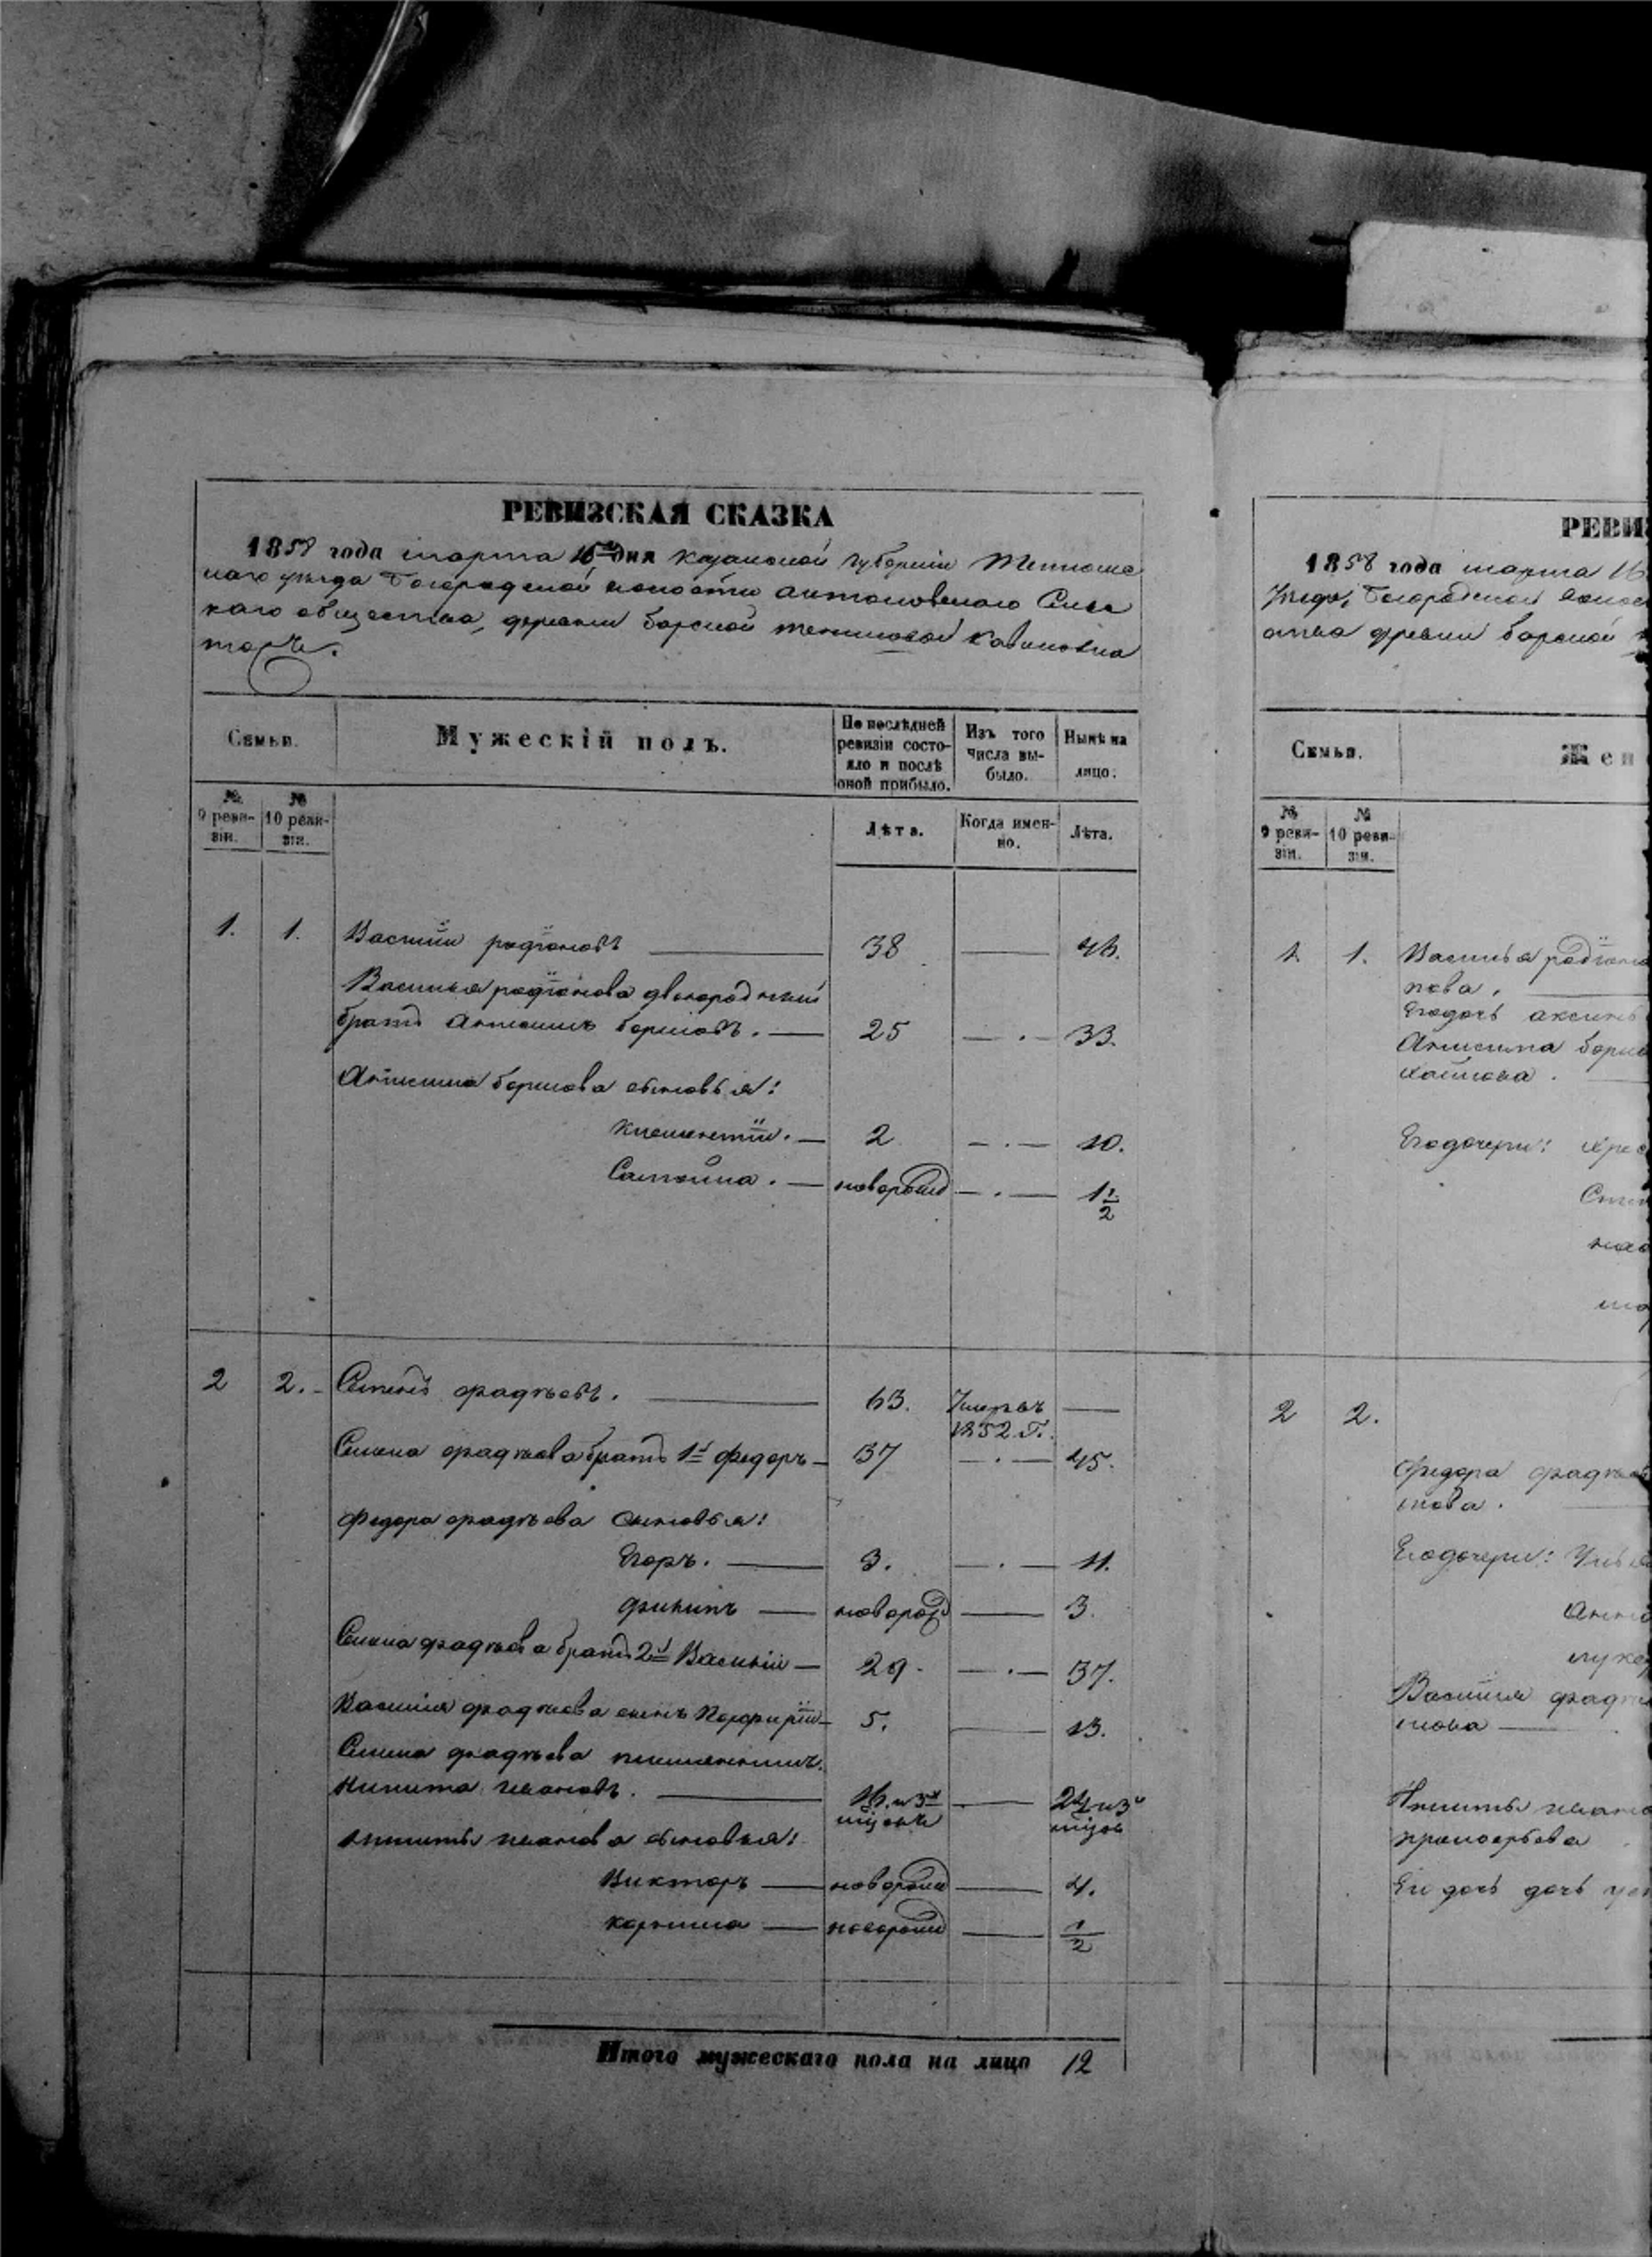 РЕВИЗСКАЯ СКАЗКА
1858 года марта 16 дня Казанской Губернiи
наго уѣзда Богородской волости антоновскаго Сельс
каго общества, деревни барской
Семьи.
Мужескiй полъ.
По послѣдней ревизiи состо-
яло и послѣ
оной прибыло.
Изъ того
числа вы-
было.
Нынѣ на
лицо.
№ 9 реви-
зiи.
№ 10 реви-
зiи.
Лѣта.
Когда имен-
но.
Лѣта.
1. 1. Василiй радiоновъ 38 46.
Василья радiонова двоюродный
братъ Анисимъ борисовъ. 25 33.
Анисима борисова сыновья:
Климентiй. 2 10.
Самойла. новорожд 1 1/2
2 2. Семенъ фадѣевъ. 63. Умеръ въ
1852. Г.
Семена фадѣева братъ 1й федоръ 37 45.
федора фадѣева сыновья:
Егоръ. 3. 11.
филипъ новорожд 3.
Семена фадѣева братъ 2й Василiй 29. 37.
Василiя фадѣева сынъ Порфирiй 5. 13.
Семена фадѣева племянникъ
Никита ивановъ. 16. и 3х
мѣсяцъ
24 и 3х
мѣсяц
никиты иванова сыновья:
Викторъ новорожд 4.
корнила новорожд 1/2
Итого мужескаго пола на лицо 12
РЕВИЗ
1858 года марта 16
Уѣзда, Богородской волос
ства деревни барской
Семьи.
Жен
№ 9 реви-
зiи.
№ 10 реви-
зiи.
1. 1. Василья радiоно
нова,
Его дочь аксинь
Анисима борисо
Его дочери:
2 2.
федора фадѣев
нова.
Его дочери: Улья
Анна
лукер
Василiя фадѣе
нова
Никиты ивано
Его дочь